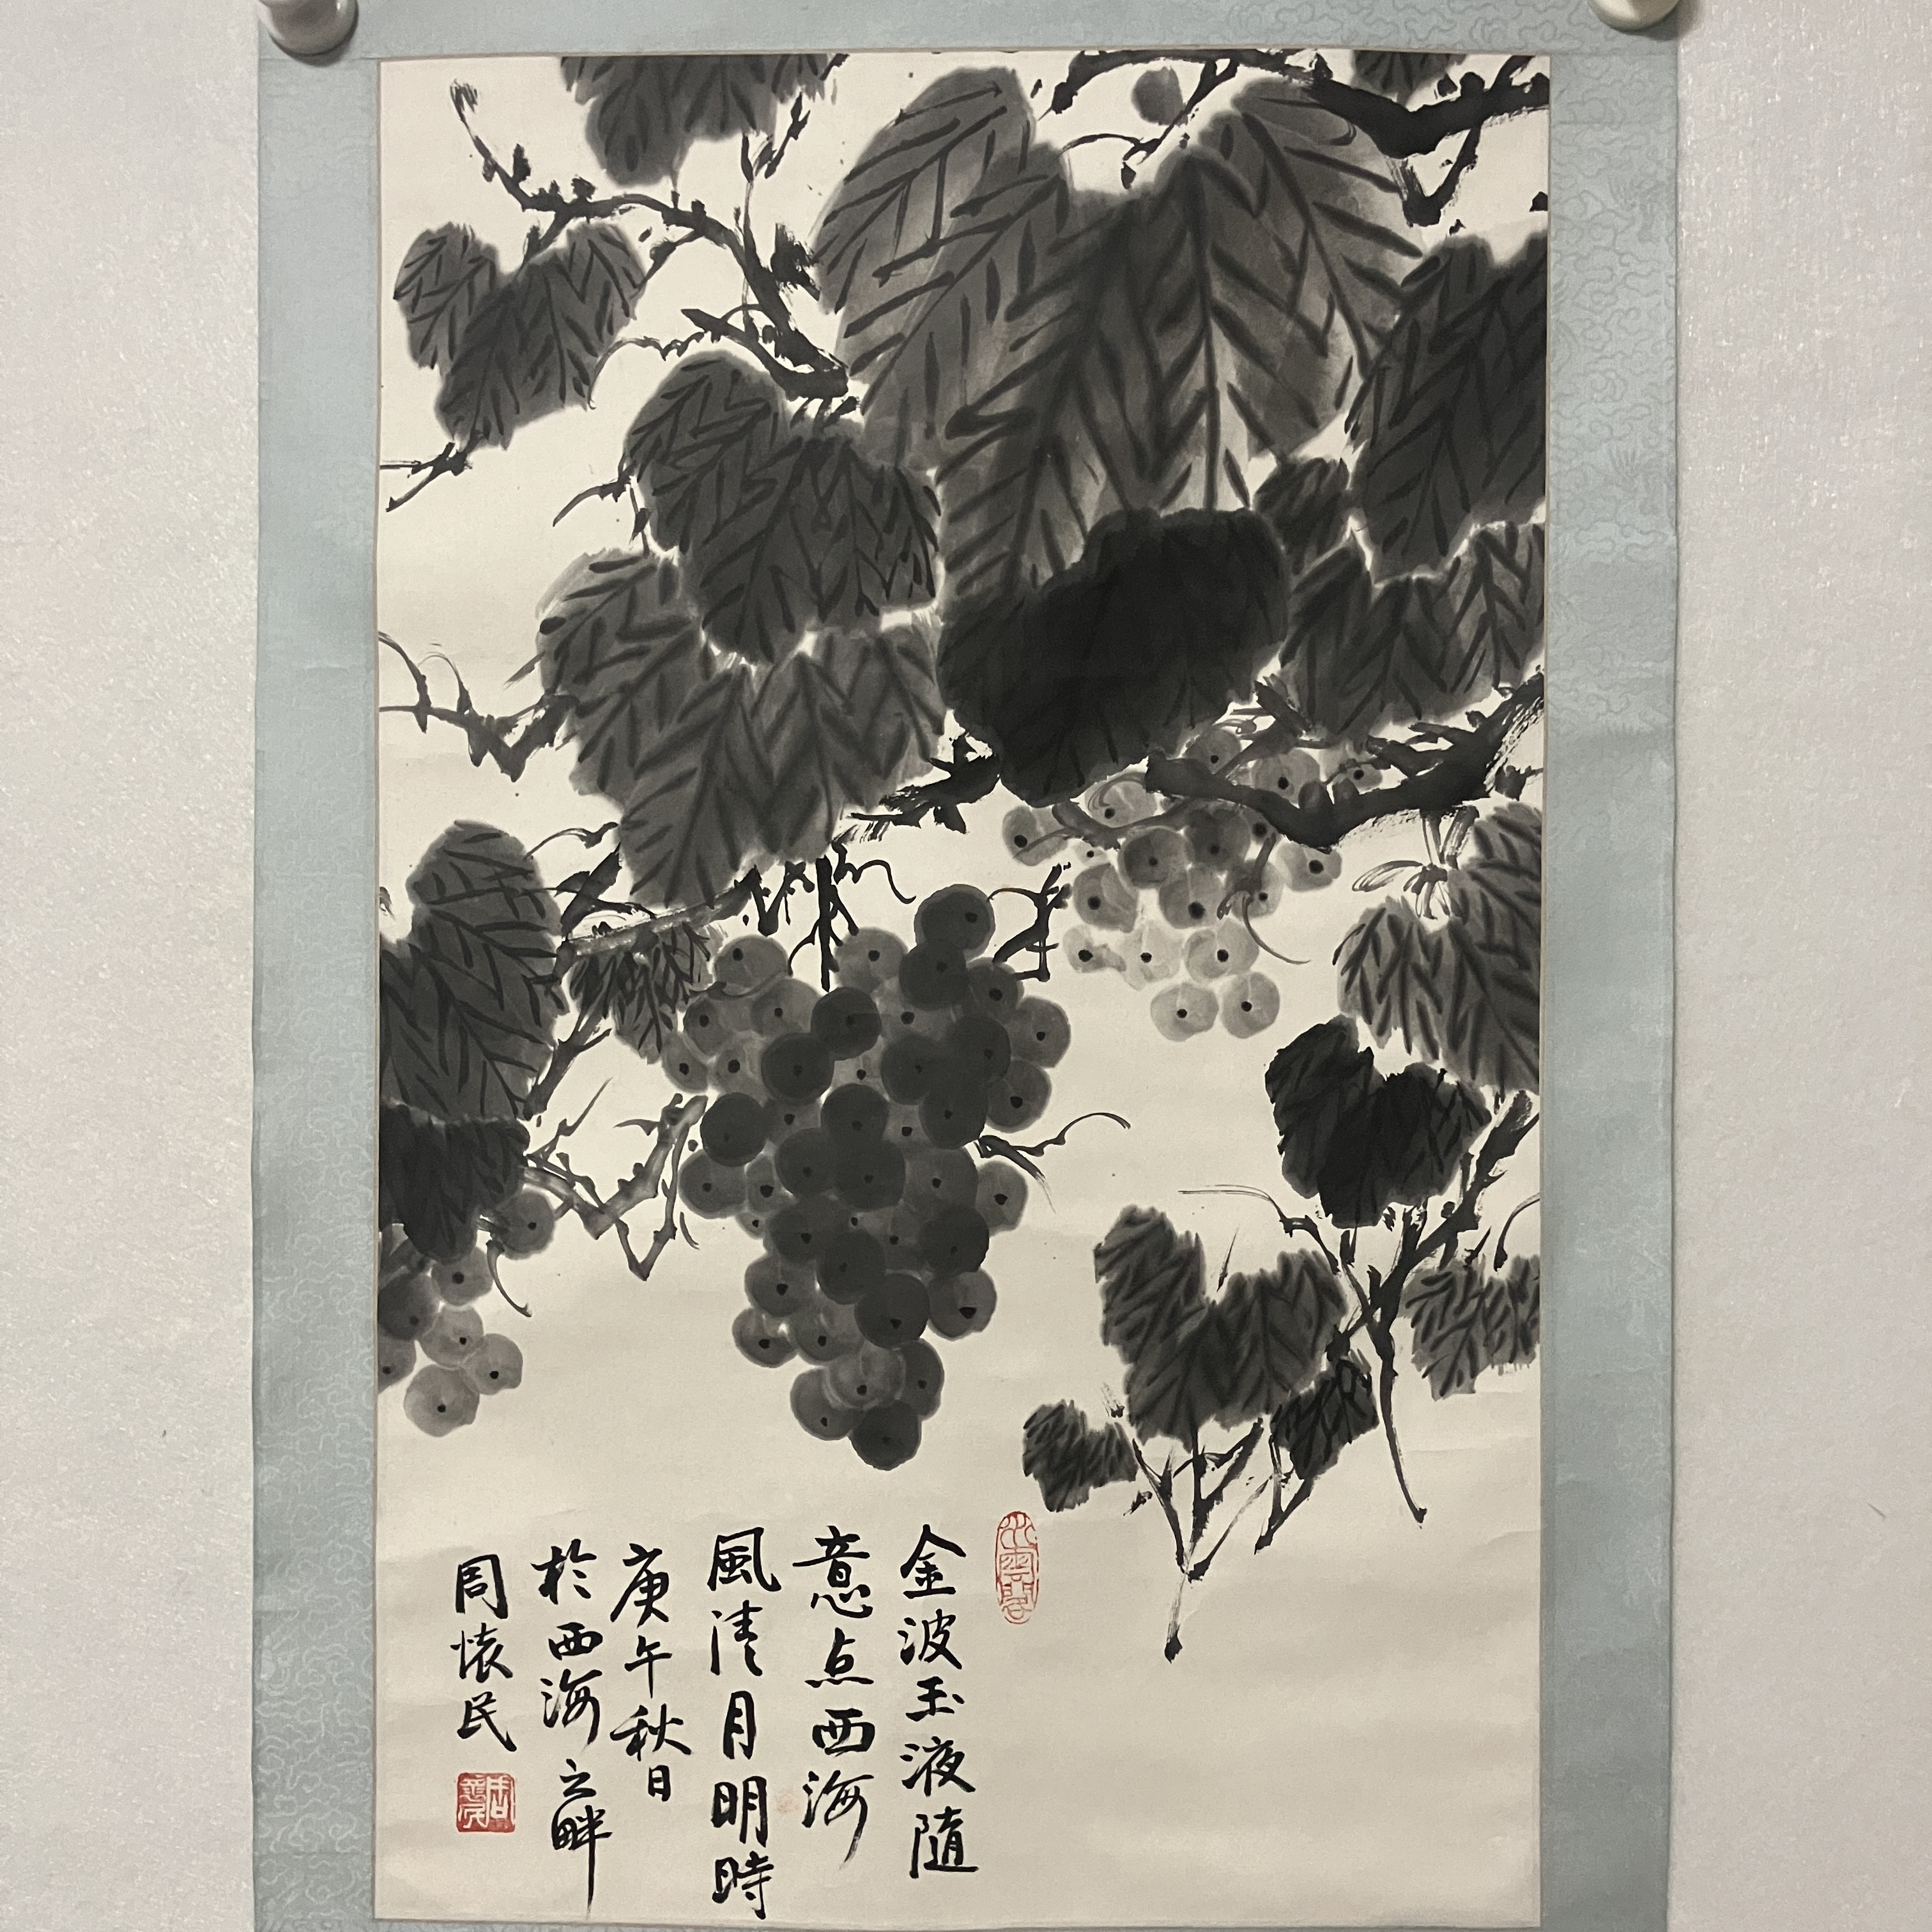 金波玉液随
意点西海
風清月明時
庚午秋日
於西海之畔
周懐民